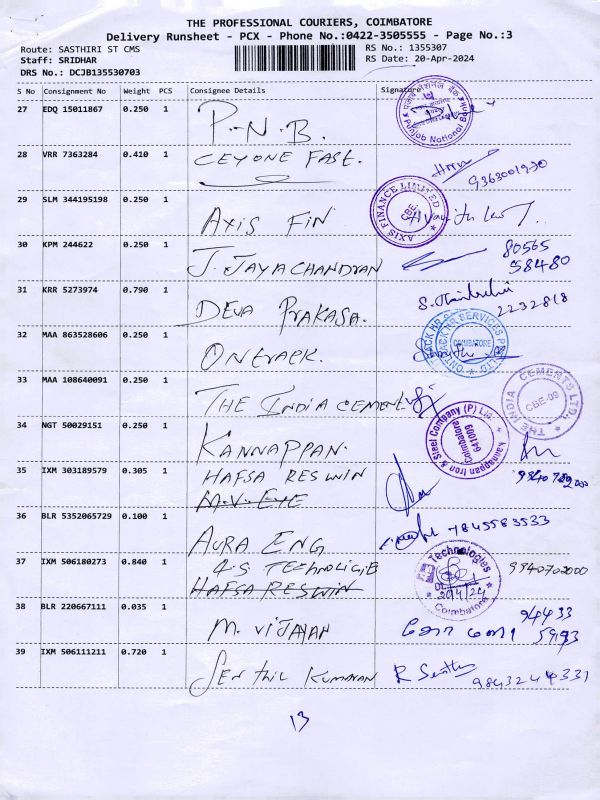 THE PROFESSIONAL COURIERS, COIMBATORE
Delivery Runsheet - PCX - Phone No.:0422-3505555 - Page No.:3
Route: SASTHIRI ST CMS RS No.: 1355307
Staff: SRIDHAR RS Date: 20-Apr-2024
DRS No.: DCJB135530703
S No Consignment No Weight PCS Consignee Details Signature
27 EDQ 15011867 0.250 1
P.N.B.
Punjab National Bank
28 VRR 7363284 0.410 1 CEYONE FAST.
9363001930
29 SLM 344195198 0.250 1
AXIS FIN
AXIS FINANCE LIMITED
CBE.
30 KPM 244622 0.250 1
J. JAYACHANDRAN
80565
58480
31 KRR 5273974 0.790 1
DEVA PRAKASA.
2232818
32 MAA 863528606 0.250 1
ONTRACK.
ONTRACK HR SERVICES PVT LTD
COIMBATORE
33 MAA 108640091 0.250 1
THE INDIA CEMENT
THE INDIA CEMENTS LTD.
CBE-09
34 NGT 50029151 0.250 1
KANNAPPAN.
Kannappan Iron & Steel Company (P) Ltd
Coimbatore
641009
35 IXM 303189579 0.305 1 HAFSA RESWIN
M.V. EYE
36 BLR 5352065729 0.100 1
AURA ENG
7845583533
37 IXM 506180273 0.840 1 4.S TECHNOLIGIE
HAFSA RESWIN
Technologies
20/4/24
Coimbatore
9940702000
38 BLR 220667111 0.035 1
M. VIJAYAN
94433
39 IXM 506111211 0.720 1
SENTHIL KUMARAN
R Senthil
9843244331
13